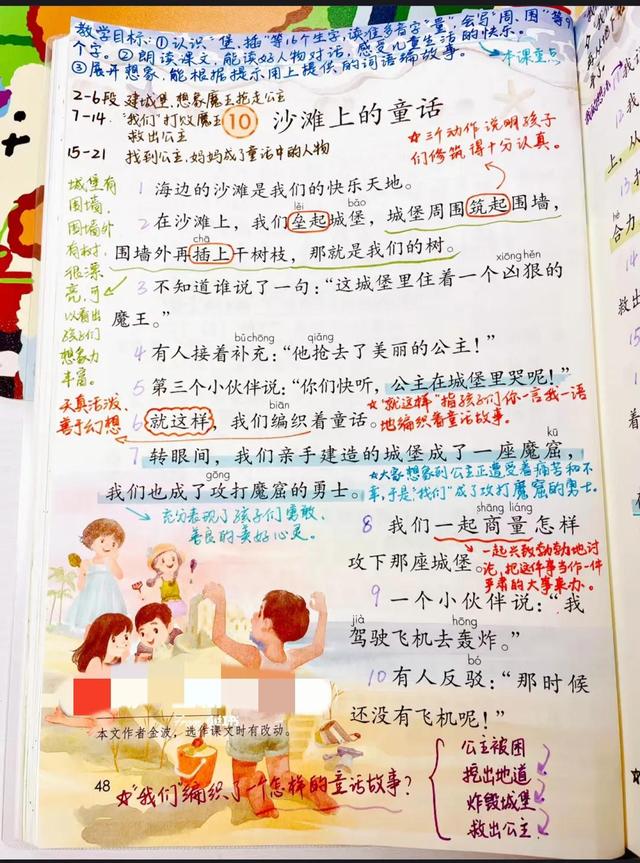 教学目标:①认识"堡,插"等16个生字,读准多音字"量",会写"周、围"等9
个字。②朗读课文,能读好人物对话,感受儿童生活的快乐。
③展开想象,能根据提示用上提供的词语编故事。
本课重点
2-6段 建城堡,想象魔王抢走公主
7-14 "我们"打败魔王
救出公主
15-21 找到公主,妈妈成了童话中的人物
10 沙滩上的童话
三个动作说明孩子
们修筑得十分认真。
城堡有
围墙,
围墙外
有树,
很漂
亮,可
以看出
孩子们
想象力
丰富。
1 海边的沙滩是我们的快乐天地。
lěi bǎo
2 在沙滩上,我们垒起城堡,城堡周围筑起围墙,
chā
围墙外再插上干树枝,那就是我们的树。
xiōng hěn
3 不知道谁说了一句:"这城堡里住着一个凶狠的
魔王。"
bǔ chōng qiǎng
4 有人接着补充:"他抢去了美丽的公主!"
5 第三个小伙伴说:"你们快听,公主在城堡里哭呢!"
天真活泼,
善于幻想
biān
6 就这样,我们编织着童话。
"就这样"指孩子们你一言我一语
地编织着童话故事。
kū
7 转眼间,我们亲手建造的城堡成了一座魔窟,
gōng
我们也成了攻打魔窟的勇士。
大家想象到公主正遭受着痛苦和不
幸,于是"我们"成了攻打魔窟的勇士。
充分表现了孩子们勇敢、
善良的美好心灵。
shāng liáng
8 我们一起商量怎样
攻下那座城堡。
一起兴致勃勃地讨
论,把这件事当作一件
严肃的大事来办。
9 一个小伙伴说:"我
jià hōng
驾驶飞机去轰炸。"
bó
10 有人反驳:"那时候
还没有飞机呢!"
本文作者金波,选作课文时有改动。
48
"我们"编织了一个怎样的童话故事?
公主被困
挖出地道
炸毁城堡
救出公主